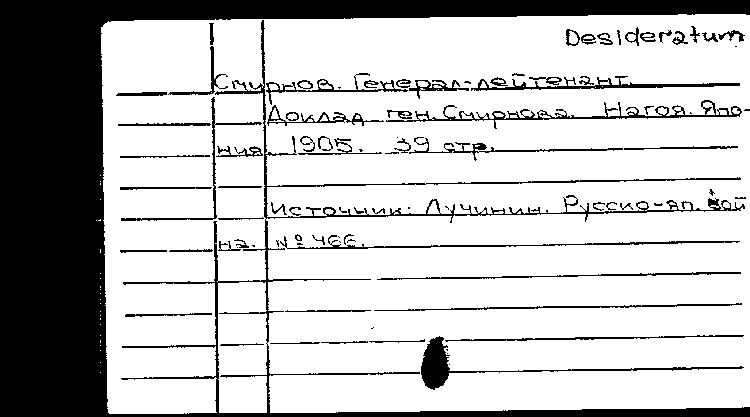 Desideratum
Смирнов. Генерал-лейтенант.
Доклад ген. Смирнова. Нагоя. Япо-
ния. 1905. 39 стр.
Источник: Лучинин. Русско-яп. вой
на. № 466.